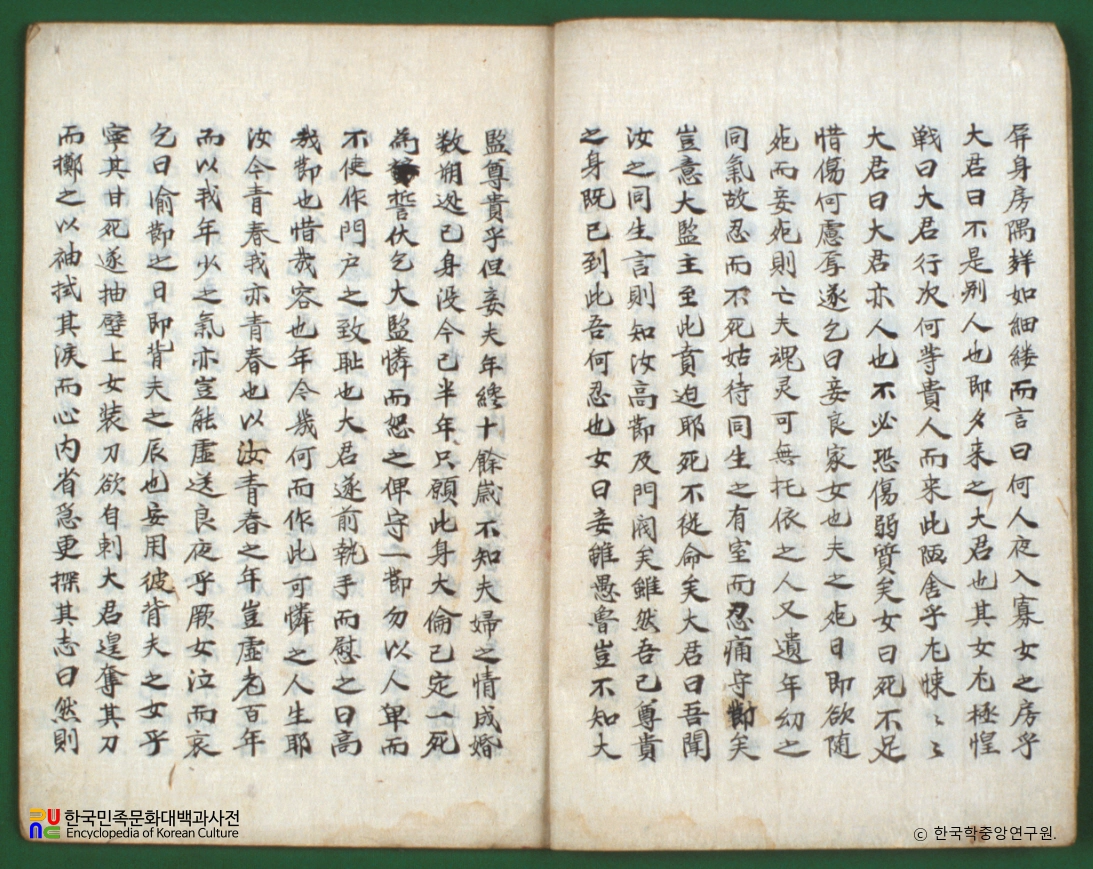 屛身房隅鮮如細縷而言曰何人夜入寡女之房乎
大君曰不是別人也卽夕来之大君也其女尤極惶
戦曰大君行次何等貴人而来此陋舍乎尤悚〻〻
大君曰大君亦人也不必恐傷弱質矣女曰死不足
惜傷何慮辱遂乞曰妾良家女也夫之死日卽欲隨
死而妾死則亡夫魂灵可無托依之人又遺年幼之
同氣故忍而不死姑待同生之有室而忍痛守節矣
豈意大監主至此賁迫耶死不從命矣大君曰吾聞
汝之同生言則知汝高節及門閥矣雖然吾已尊貴
之身旣已到此吾何忍也女曰妾雖愚魯豈不知大
監尊貴乎但妾夫年終十餘歲不知夫婦之情成婚
数朔迯已身没今已半年只願此身大倫已定一死
為誓伏乞大監憐而恕之俾守一節勿以人卑而
不使作門户之致耻也大君遂前執手而慰之曰高
哉節也惜哉容也年今幾何而作此可憐之人生耶
汝今青春我亦青春也以汝青春之年豈虛老百年
而以我年少之氣亦豈能虛送良夜乎厥女泣而哀
乞曰渝節之日卽背夫之辰也安用彼背夫之女乎
寧其甘死遂抽壁上女装刀欲自刺大君遑奪其刀
而擲之以袖拭其淚而心内省愍更探其志曰然則
한국민족문화대백과사전
Encyclopedia of Korean Culture
© 한국학중앙연구원.